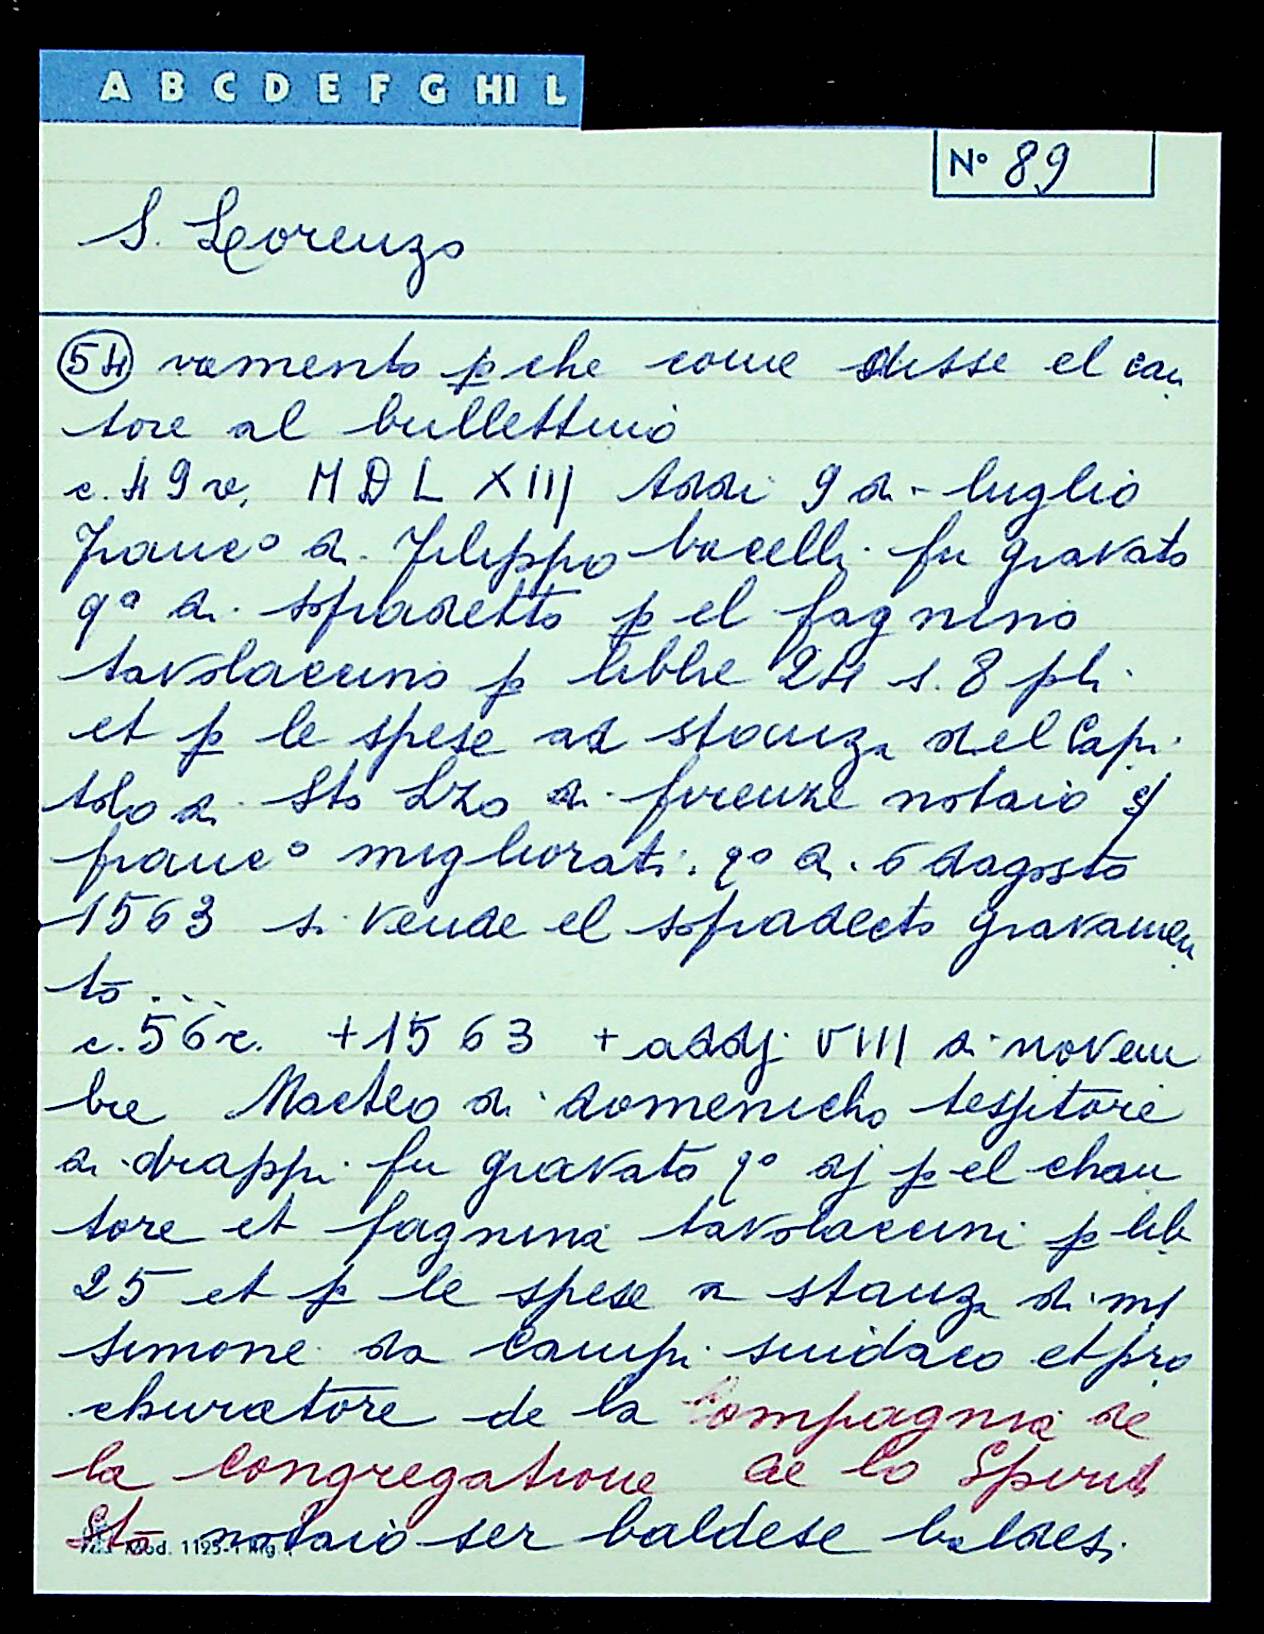 A B C D E F G HI L
N° 89
S. Lorenzo
54 vamento p che come disse el can
tore al bullettino
c. 49 v. MDLXIII Addi 9 di luglio
Franc° di Filippo bacelli fu gravato
q° di sopradetto p el fagnino
tavolaccino p libbre 24 s. 8 pli
et p le spese ad stanza del Capi
tolo di Sto Lzo di firenze notaio
franc° migliorati. q° di 6 dagosto
1563 si vende el sopradecto gravamen
to ....
c. 56 r. + 1563 + addj VIII di novem
bre Macteo di domenicho tessitore
di drappi fu gravato q° dj p el chan
tore et fagnina tavolaccini p lib
25 et p le spese a stanza di
simone da Campi sindaco et pro
churatore de la Compagnia de
la Congregatione de lo Spirit
Sto notaio ser baldese baldesi.
Mod. 1125-1